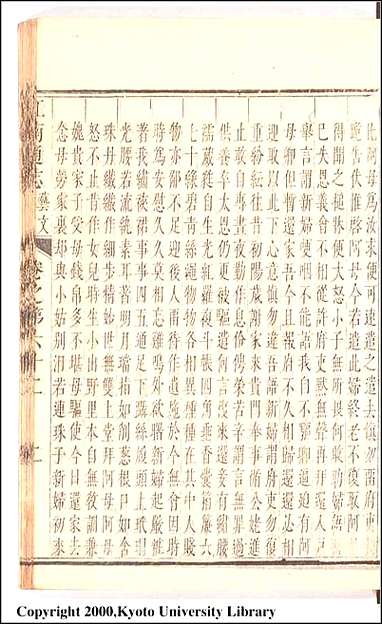 比阿母為汝求便可速遣之遣去慎勿留府吏長
跪告伏惟啟阿母今若遣此婦終老不復取阿母
得聞之槌牀便大怒小子無所畏何敢助婦語吾
已失恩義會不相從許府吏默無聲再拜還入戶
舉言謂新婦哽咽不能語我自不驅卿逼迫有阿
母卿但暫還家吾今且報府不久相歸還還必相
迎取以此下心意慎勿違吾語新婦謂府吏勿復
重紛紜往昔初陽歲謝家來貴門奉事循公姥進
止敢自專晝夜勤作息伶俜縈苦辛謂言無罪過
供養卒大恩仍更被驅遣何言復來還妾有繡腰
襦葳蕤自生光紅羅複斗帳四角垂香囊箱簾六
七十綠碧青絲繩物物各相異種種在其中人賤
物亦鄙不足迎後人留待作遺施於今無會因時
時為安慰久久莫相忘雞鳴外欲曙新婦起嚴粧
著我繡裌裙事事四五通足下躡絲履頭上玳瑁
光腰若流紈素耳著明月璫指如削蔥根口如含
珠丹纖纖作細步精妙世無雙上堂拜阿母阿母
怒不止昔作女兒時生小出野里本自無教訓兼
媿貴家子受母錢帛多不堪母驅使今日還家去
念母勞家裏却與小姑別淚若連珠子新婦初來
江南通志 藝文 卷之第六十二 二
Copyright 2000,Kyoto University Library